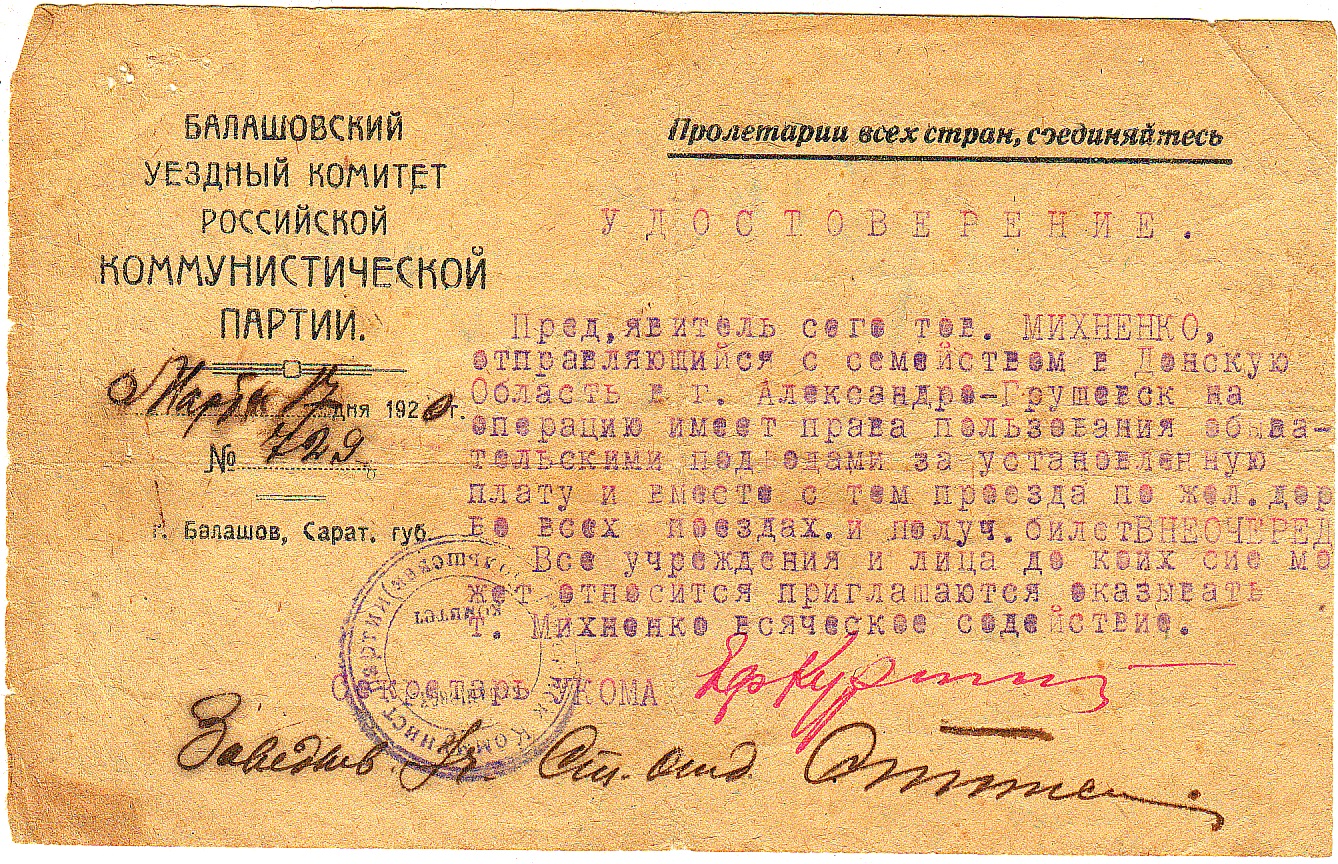 БАЛАШОВСКИЙ
УЕЗДНЫЙ КОМИТЕТ
РОССИЙСКОЙ
КОММУНИСТИЧЕСКОЙ
ПАРТИИ.
Марта 12 дня 1920 г.
№ 729
г. Балашов, Сарат. губ.
Пролетарии всех стран, соединяйтесь
УДОСТОВЕРЕНИЕ.
Пред,явитель сего тов. МИХНЕНКО,
отправляющийся с семейством в Донскую
Область в г. Александро-Грушевск на
операцию имеет права пользования обыва-
тельскими подводами за установленную
плату и вместе с тем проезда по жел.дор
Во всех поездах. и получ.билетВНЕОЧЕРЕД
Все учреждения и лица до коих сие мо
жет относится приглашаются оказывать
т. Михненко всяческое содействие.
Секретарь УКОМА
Заведыв. Уч. Ст. отд.